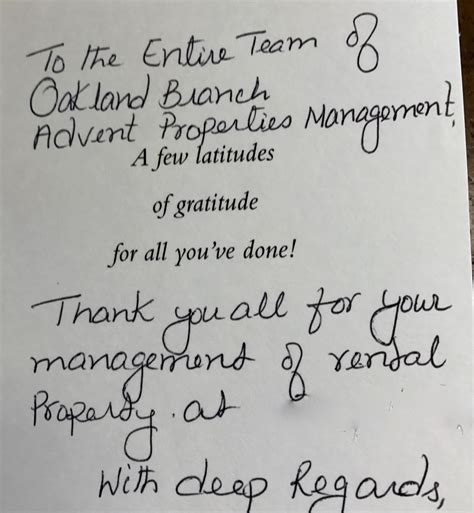 To the Entire Team of
Oakland Branch
Advent Properties Management,
A few latitudes
of gratitude
for all you've done!
Thank you all for your
management of rental
Property. at
With deep Regards,